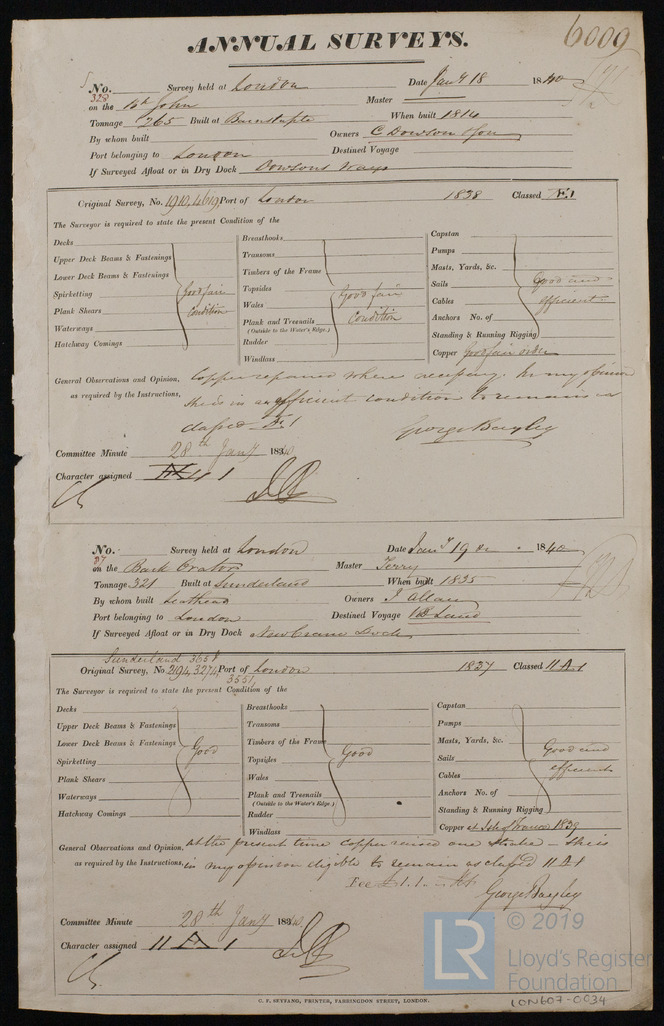 6009
ANNUAL SURVEYS.
No. 328 Survey held at London Date Jany 18 1840
on the John Master
Tonnage 265 Built at When built 1814
By whom built Owners C Dowson
Port belonging to London Destined Voyage
If Surveyed Afloat or in Dry Dock Dowsons Ways
Original Survey, No. 1910, 4619, Port of London 1838 Classed Æ1
The Surveyor is required to state the present Condition of the
Decks
Upper Deck Beams & Fastenings
Lower Deck Beams & Fastenings
Spirketting Good fair
Plank Shears condition
Waterways
Hatchway Comings
Breasthooks
Transoms
Timbers of the Frame
Topsides Good fair
Wales
Plank and Treenails condition
(Outside to the Water's Edge.)
Rudder
Windlass
Capstan
Pumps
Masts, Yards, &c.
Sails Good and
Cables efficient
Anchors No. of
Standing & Running Rigging
Copper Good fair order
General Observations and Opinion, Copper repaired where necessary. In my opinion
as required by the Instructions, she is in an efficient condition to remain as
classed Æ1 George Bayley
Committee Minute 28th Jany 1840
Character assigned Æ 1
No. 27 Survey held at London Date Jany 19 1840
on the Bark Orator Master Terry
Tonnage 321 Built at Sunderland When built 1835
By whom built Leithead Owners J Allan
Port belonging to London Destined Voyage
If Surveyed Afloat or in Dry Dock New Crane Dock
Sunderland 365
Original Survey, No. 2194, 3274, Port of London 1837 Classed 11 A 1
3551
The Surveyor is required to state the present Condition of the
Decks
Upper Deck Beams & Fastenings
Lower Deck Beams & Fastenings
Spirketting Good
Plank Shears
Waterways
Hatchway Comings
Breasthooks
Transoms
Timbers of the Frame
Topsides Good
Wales
Plank and Treenails
(Outside to the Water's Edge.)
Rudder
Windlass
Capstan
Pumps
Masts, Yards, &c.
Sails Good and
Cables efficient
Anchors No. of
Standing & Running Rigging
Copper at Isle of France 1839
General Observations and Opinion, At the present time copper raised one strake - She is
as required by the Instructions, in my opinion eligible to remain as classed 11 A 1
Fee £1.1..
George Bayley
Committee Minute 28th Jany 1840
Character assigned 11 A 1
© 2019
LR
Lloyd's Register
Foundation
C. F. SEYFANG, PRINTER, FARRINGDON STREET, LONDON.
LON607-0034